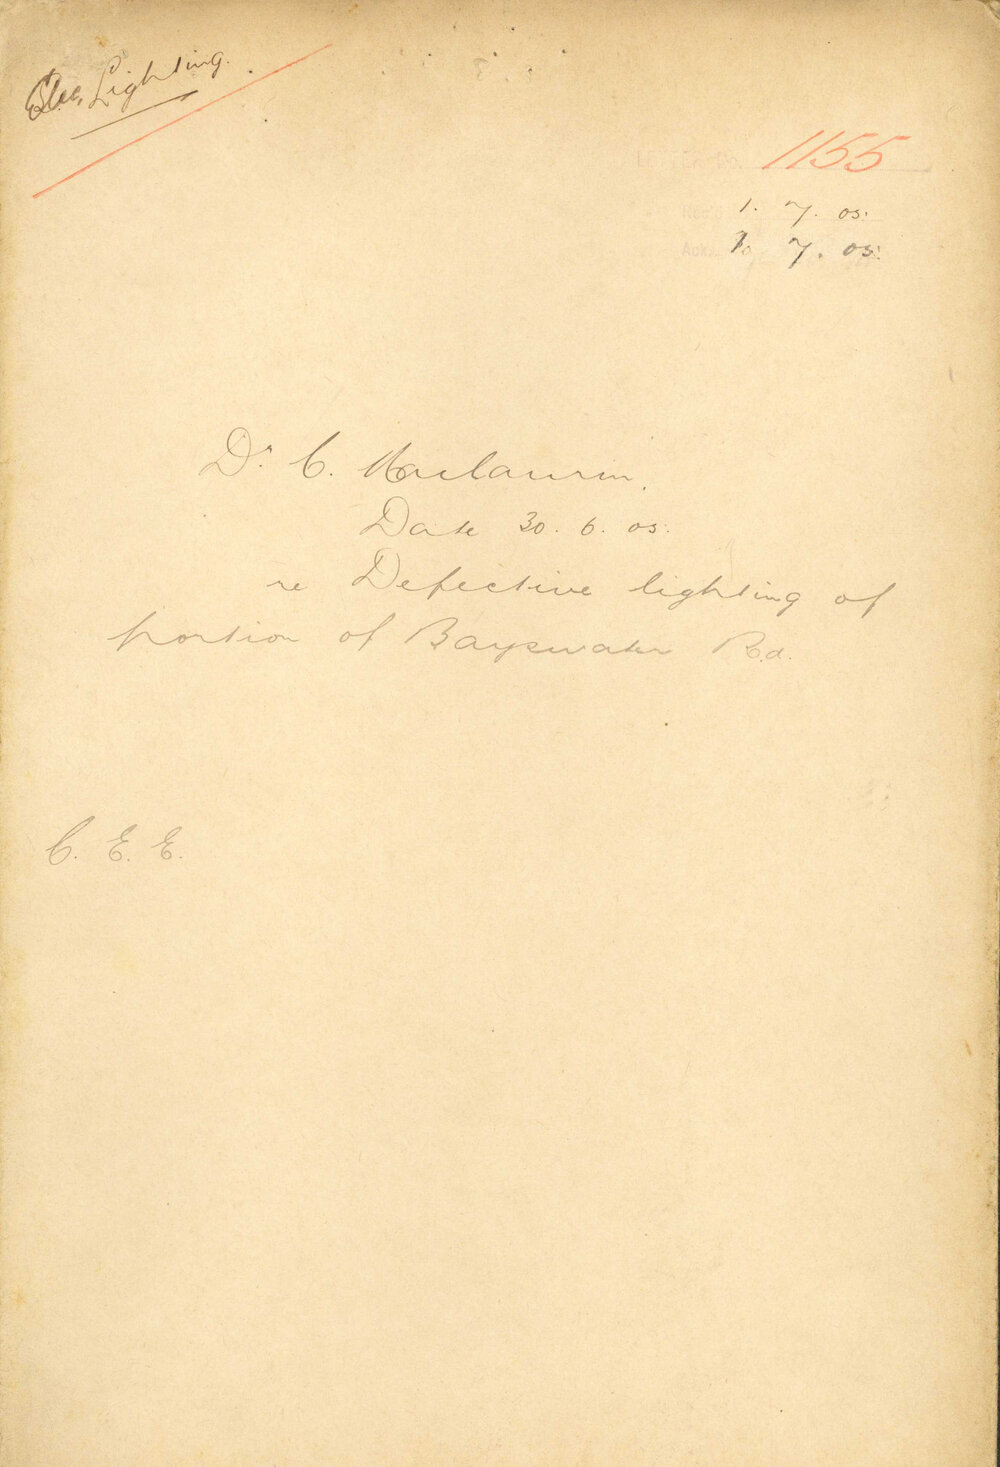 Elec. Lighting.
LETTER No. 1155
Rec'd 1. 7. 05.
Ack. 1. 7. 05.
Dr. C. Maclaurin.
Date 30. 6. 05.
re Defective lighting of
portion of Bayswater Rd.
C. E. E.